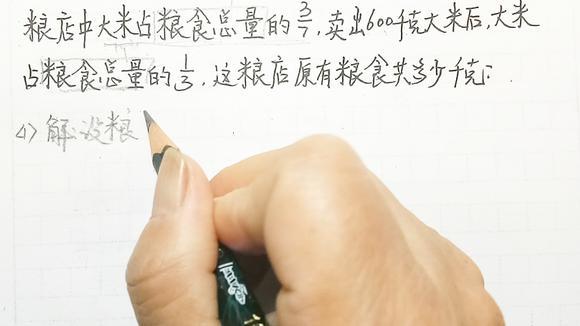 粮店中大米占粮食总量的3/7，卖出600千克大米后，大米
占粮食总量的1/3，这粮店原有粮食共多少千克？
<1> 解：设粮